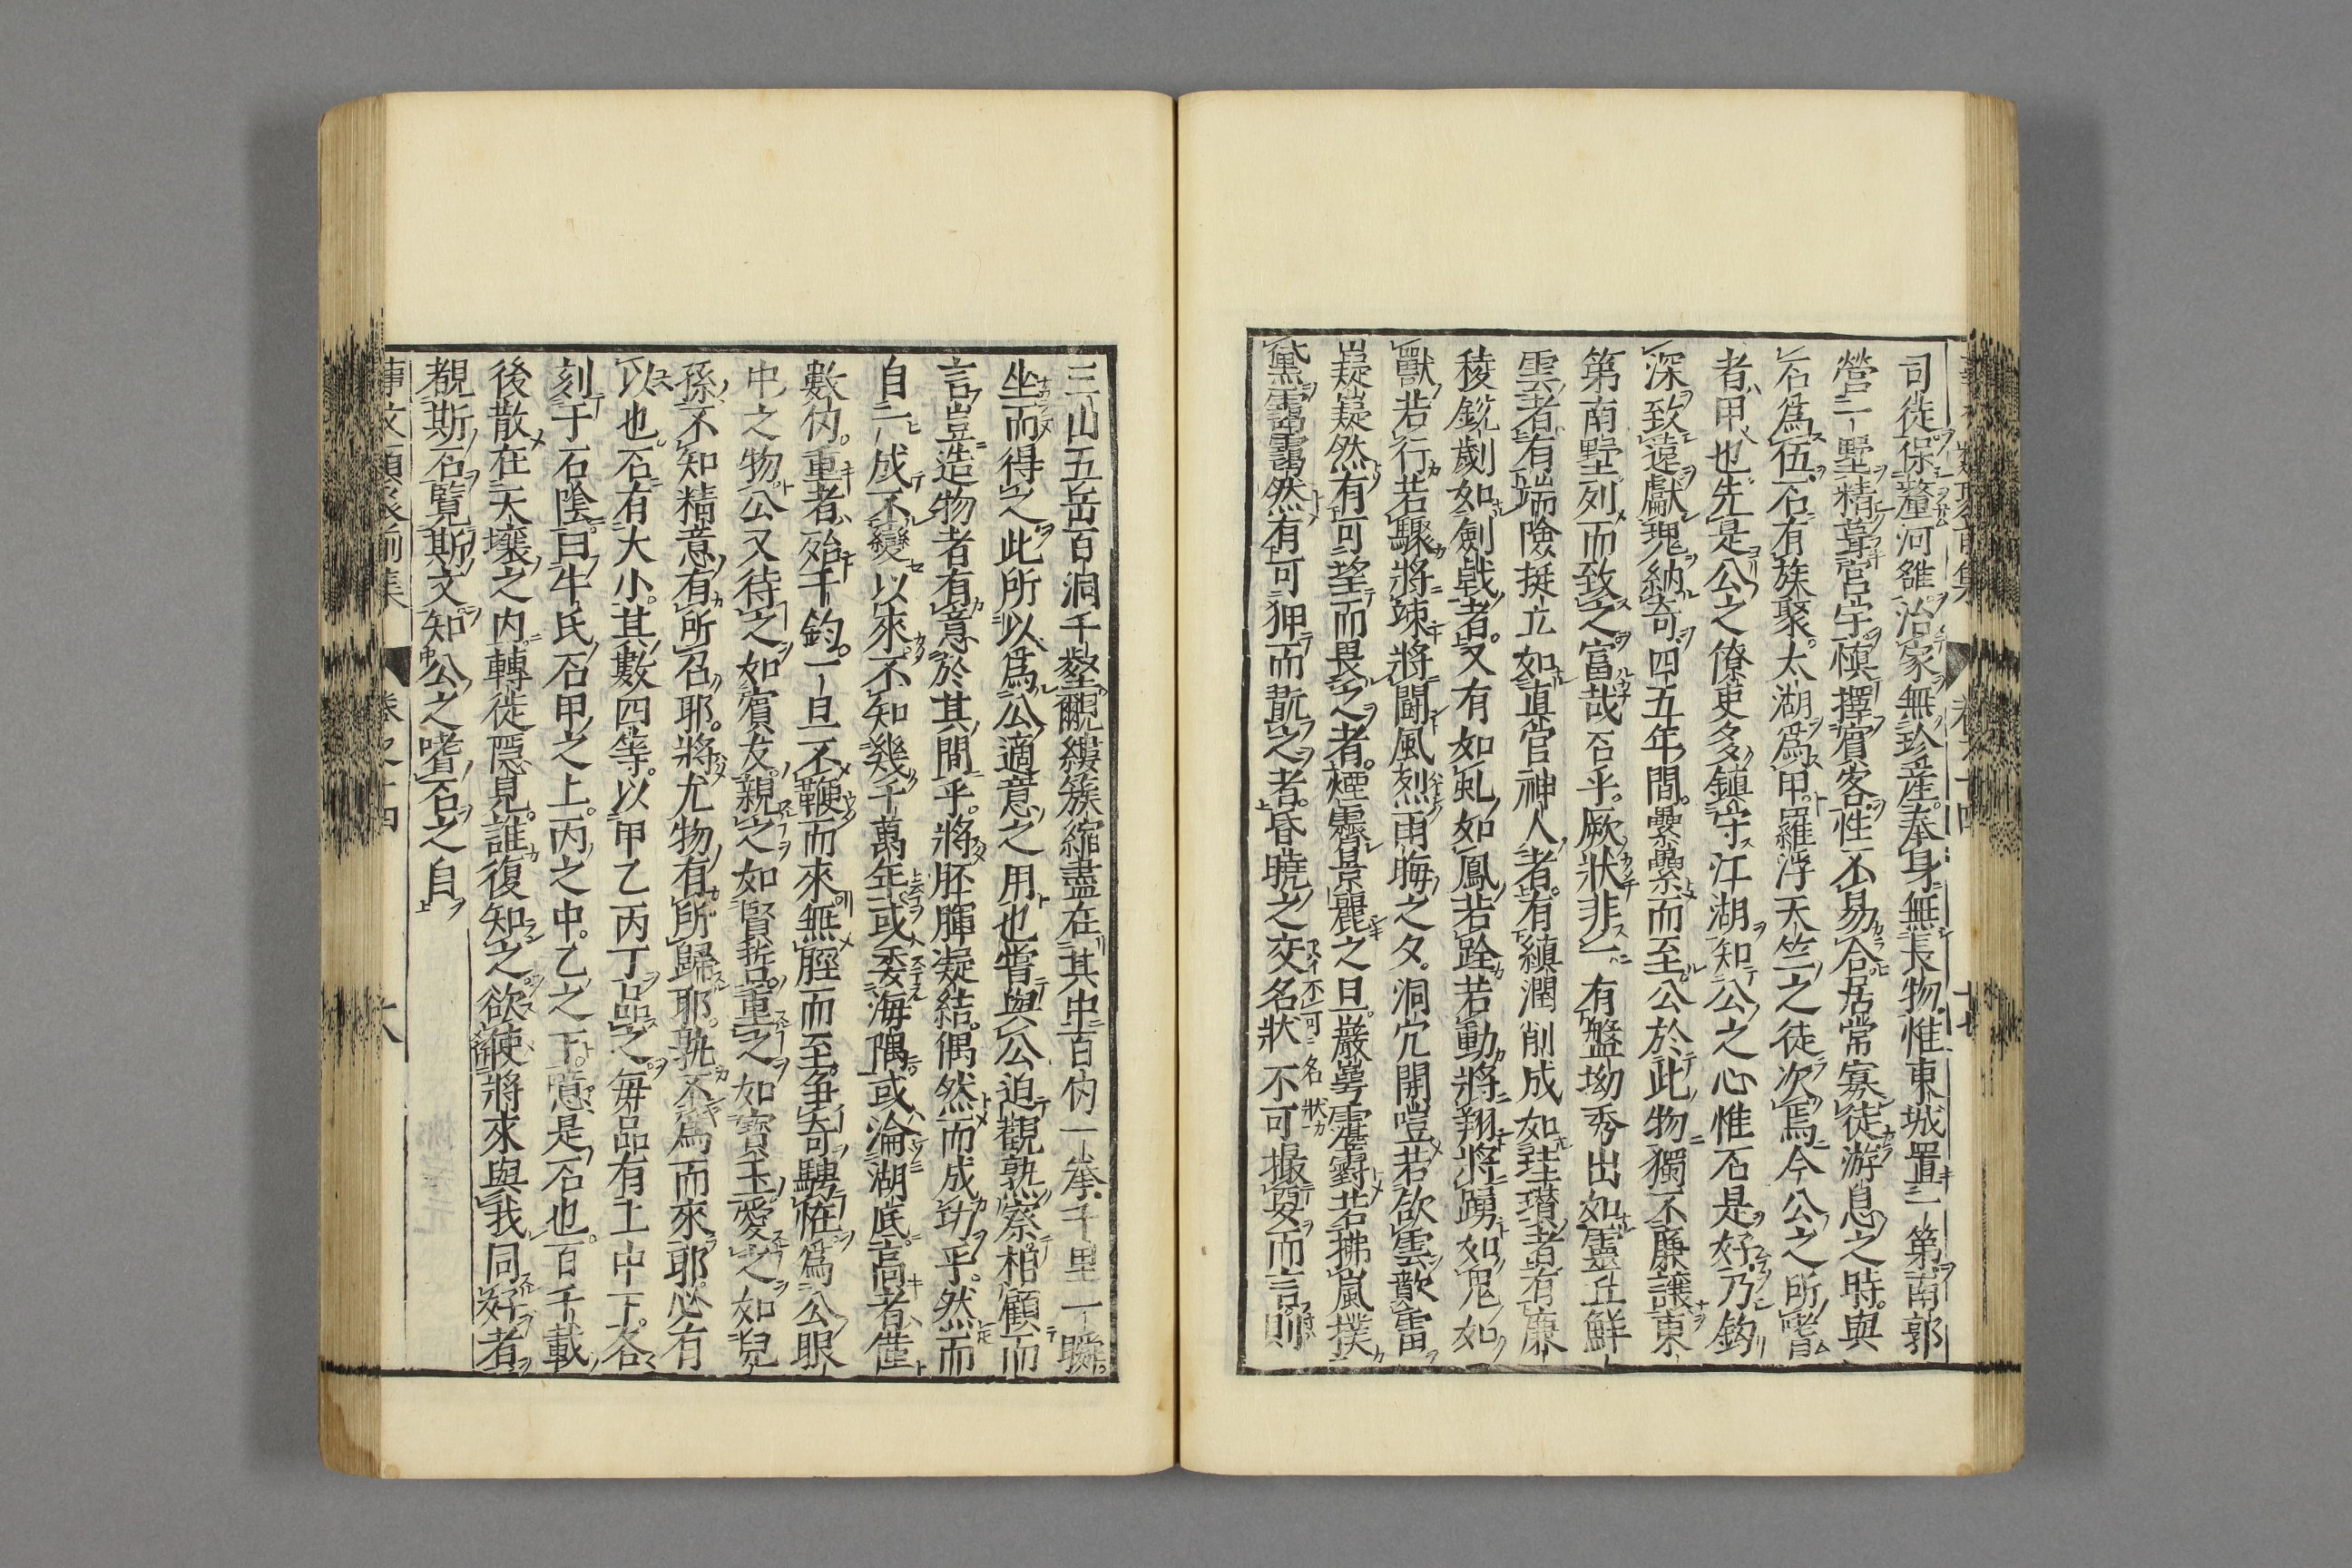 司徒保釐河雒治家無珍産。奉身無長物惟東城置一第南郭
營一墅精葺宮宇愼擇賓客。性不易合居常寡徒游息之時。與
石爲伍。石有族聚。太湖爲甲。羅浮天竺之徒次焉今公之所嗜
者甲也先是公之僚吏多鎮守江湖知公之心惟石是好乃鈎
深致遠獻瑰納奇。四五年間。纍纍而至公於此物獨不廉讓東
第南墅列而致之富哉石乎。厥狀非一。有盤坳秀出如靈丘鮮
雲者有端險挺立如眞官神人者。有縝潤削成如珪瓚者有廉
稜鋭劌如劍戟者。又有如虬如鳳若跧若動將翔將踴如鬼如
獸若行若驟將竦將鬪風烈雨晦之夕。洞穴開皚若欲雲歕雷
嶷嶷然有可望而畏之者。煙霽景麗之旦。巖崿霮䨴若拂嵐撲
黛靄靄然有可狎而翫之者。昏曉之交名狀不可撮要而言則
三山五岳百洞千壑覼縷簇縮盡在其中百仞一拳千里一瞬
坐而得之此所以爲公適意之用也嘗與公迫觀熟察相顧而
言豈造物者有意於其間乎。將胚腪凝結。偶然而成功乎。然而
自一成不變以來不知幾千萬年或委海隅或淪湖底高者僅
數仞。重者殆千鈞。一旦不鞭而來無脛而至。争奇騁怪爲公眼
中之物公又待之如賓友。親之如賢哲。重之如寶玉愛之如兒
孫。不知精意有所召耶。將尤物有所歸耶。孰不爲而來耶必有
以也石有大小。其數四等。以甲乙丙丁品之毎品有上中下各
刻于石陰曰牛氏石甲之上。丙之中。乙之下。噫是石也。百千載
後散在天壤之内轉徙隠見誰復知之欲使將來與我同好者
覩斯石覽斯文知公之嗜石之自